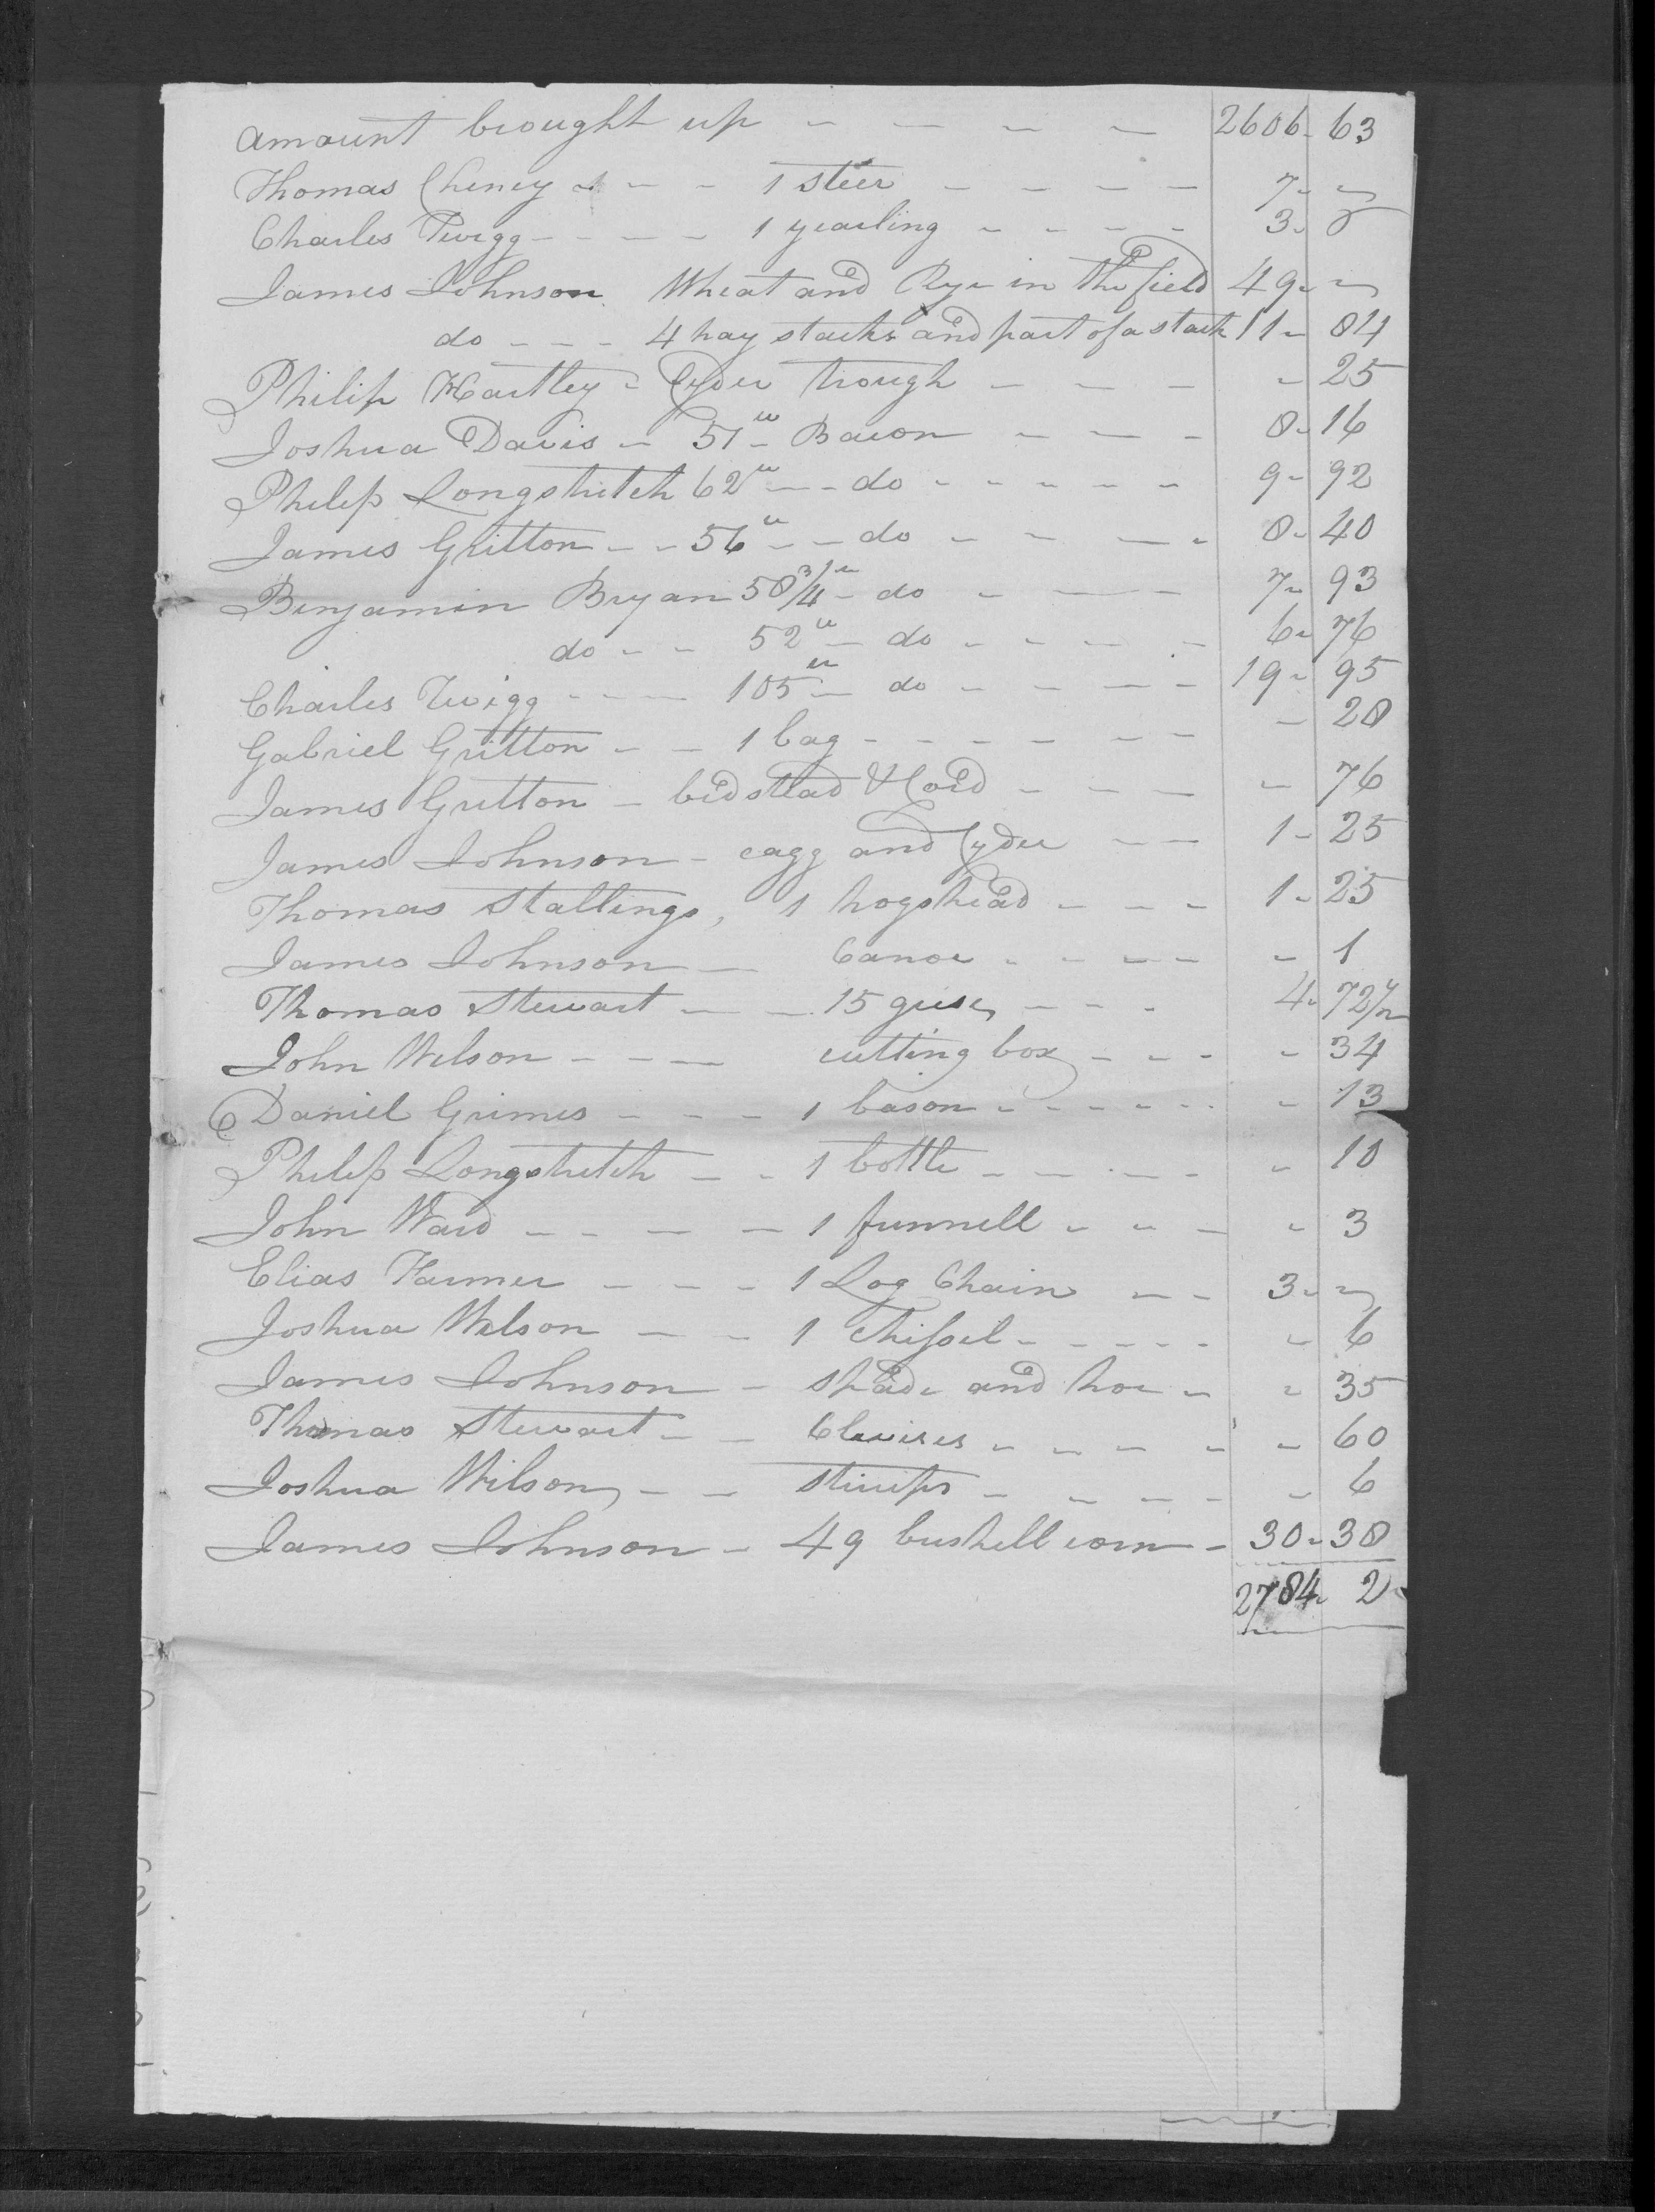 amount brought up - - - - 2606 - 63
Thomas Cheney - - - 1 steer - - - - 7 - -
Charles Twigg - - - - 1 yearling - - - - 3 -
James Johnson Wheat and Rye in the field 49 - -
do - - - 4 hay stacks and part of a stack 11 - 84
Philip Hartley - Cyder trough - - - - 25
Joshua Davis - 51 lb - Bacon - - - 8 - 16
Philip Longstreteh 62 lb - - do - - - - - 9 - 92
James Gritton - - 56 lb - - do - - - - 8 - 40
Benjamin Bryan 58 3/4 lb - do - - - 7 - 93
do - - 52 lb - do - - - - - 6 - 76
Charles Twigg - - - 105 lb - do - - - - 19 - 95
Gabriel Gritton - - 1 bag - - - - - - - 28
James Gritton - bedstead & Cord - - - - 76
James Johnson - cagg and Cyder - - 1 - 25
Thomas Stallings, 1 hogshead - - - 1 - 25
James Johnson - Canoe - - - - - 1
Thomas Stewart - - 15 geese - - - 4 - 72 1/2
John Wilson - - - cutting box - - - - 34
Daniel Grimes - - - 1 bason - - - - - - - 13
Philip Longstreteh - - 1 bottle - - - - - - 10
John Ward - - - - 1 funnell - - - - 3
Elias Farmer - - - 1 Log Chain - - 3 - -
Joshua Wilson - - 1 chissel - - - - - - 6
James Johnson - spade and hoe - - 35
Thomas Stewart - - Clevises - - - - - 60
Joshua Wilson - - stirrips - - - - - 6
James Johnson - 49 bushell corn - 30 - 38
2784 - 2 -